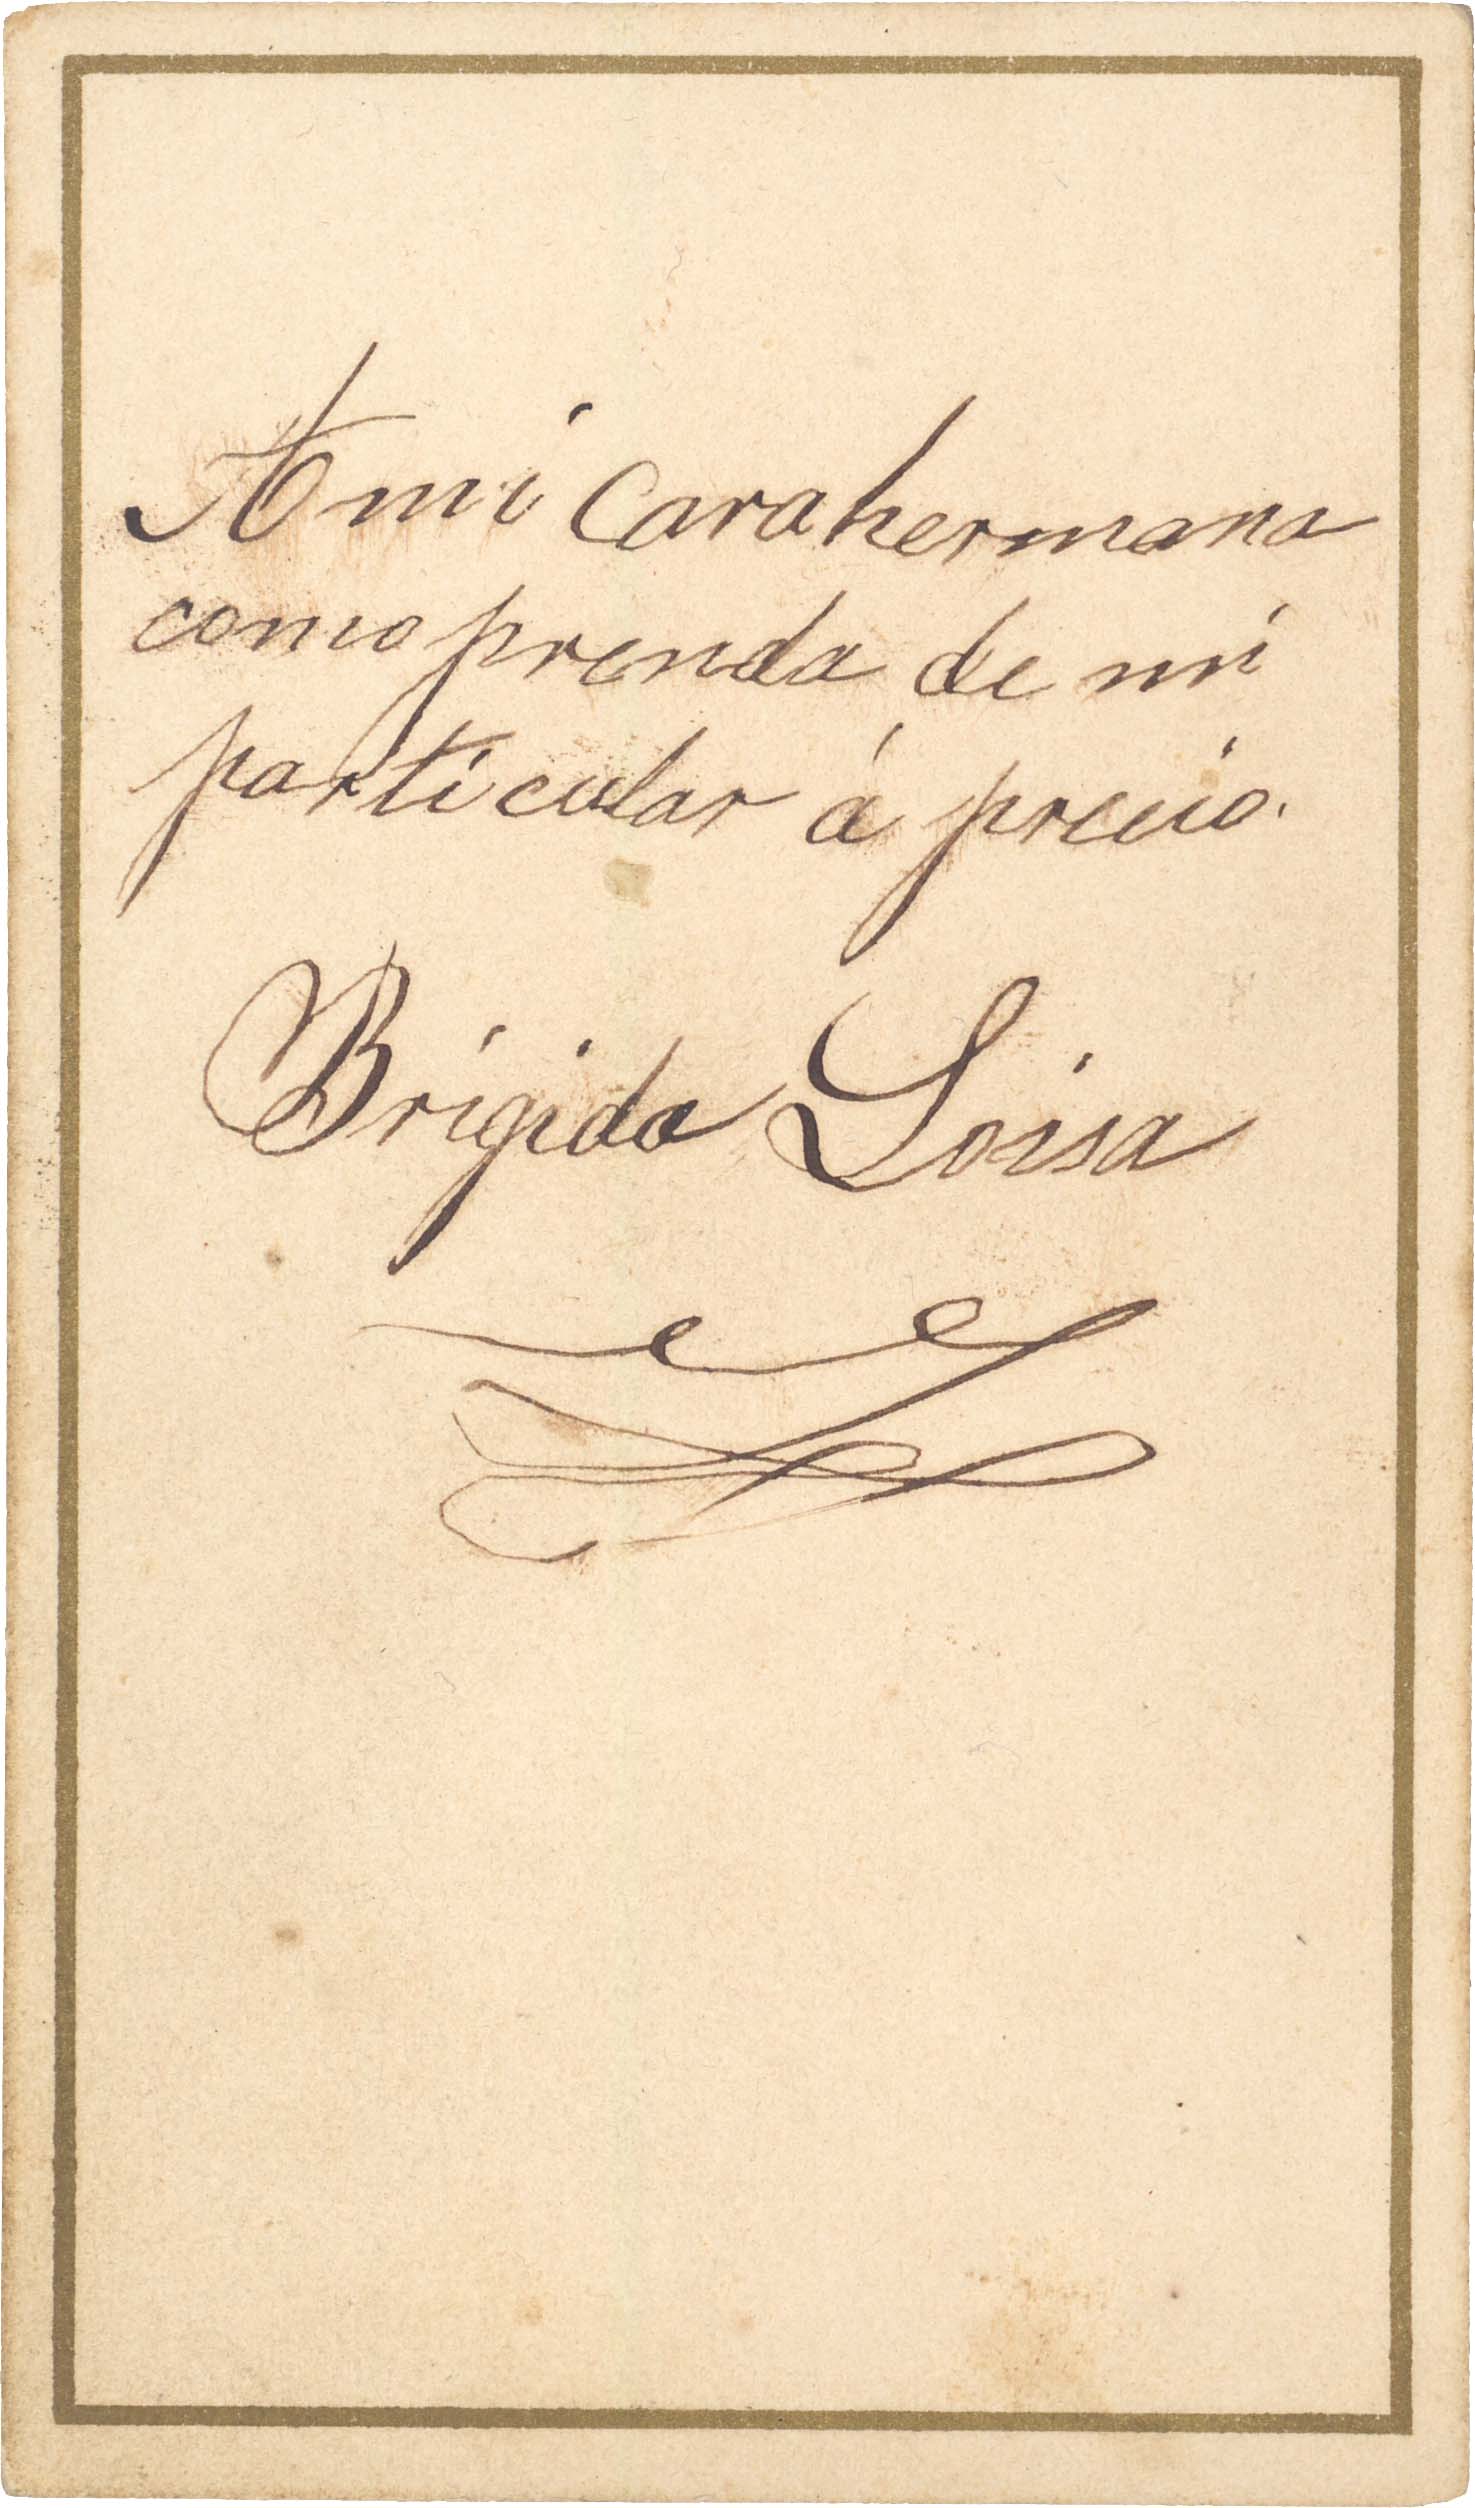 A mi Cara hermana
como prenda de mi
particular á precio.
Brigida Loisa